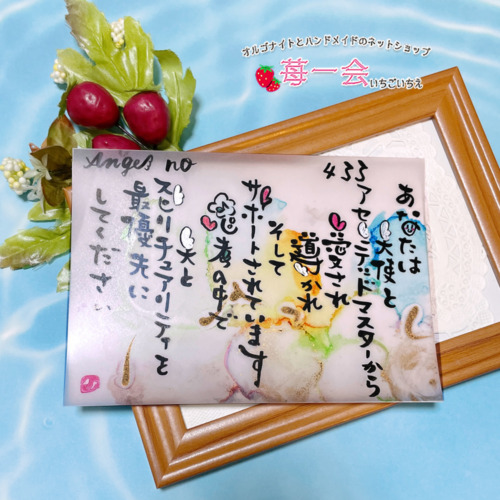 オルゴナイトとハンドメイドのネットショップ
苺一会
いちごいちえ
Angel no
433
あなたは
天使と
アセンデッドマスターから
愛され
導かれ
そして
サポートされています
思考の中で
天と
スピリチュアリティを
最優先に
してください